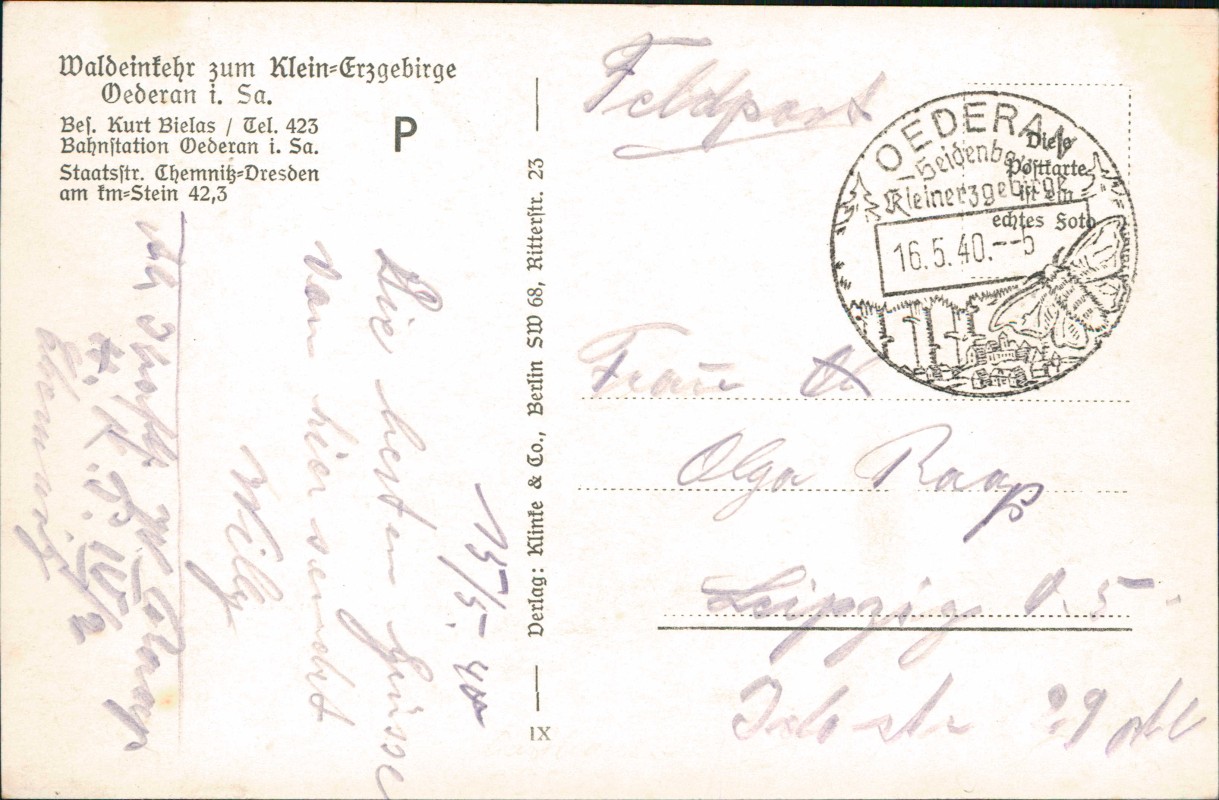 Waldeinkehr zum Klein-Erzgebirge
Oederan i. Sa.
Bes. Kurt Bielas / Tel. 423
Bahnstation Oederan i. Sa.
Staatsstr. Chemnitz-Dresden
am km-Stein 42,3
P
15/5. 40
Die besten Grüsse
von hier sendet
Willy
W. Raap
IV/2
Chemnitz
Verlag: Klinke & Co., Berlin SW 68, Ritterstr. 23
IX
Feldpost
OEDERAN
Seidenbau
Kleinerzgebirge
16.5.40.--5
Diese
Postkarte
ist ein
echtes Foto
Frau
Olga Raap
Leipzig O. 5.
29